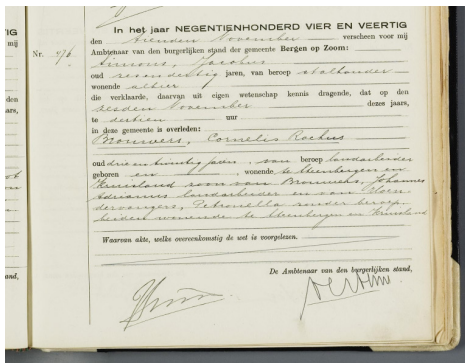 In het jaar NEGENTIENHONDERD VIER EN VEERTIG
den tienden November verscheen voor mij
Ambtenaar van den burgerlijken stand der gemeente Bergen op Zoom:
Nr. 476
Simons, Jacobus
oud zevenendertig jaren, van beroep stalhouder
wonende alhier
die verklaarde, daarvan uit eigen wetenschap kennis dragende, dat op den
zesden November dezes jaars,
te dertien uur
in deze gemeente is overleden:
Brouwers, Cornelis Rochus
oud drie en twintig jaren, van beroep landarbeider
geboren en wonende te Steenbergen en
Kruisland zoon van Brouwers, Johannes
Adrianus landarbeider en van
Petronella zonder beroep
beiden wonende te Steenbergen en Kruisland
Waarvan akte, welke overeenkomstig de wet is voorgelezen.
De Ambtenaar van den burgerlijken stand,
TIG
mij
den
aars,
stand,